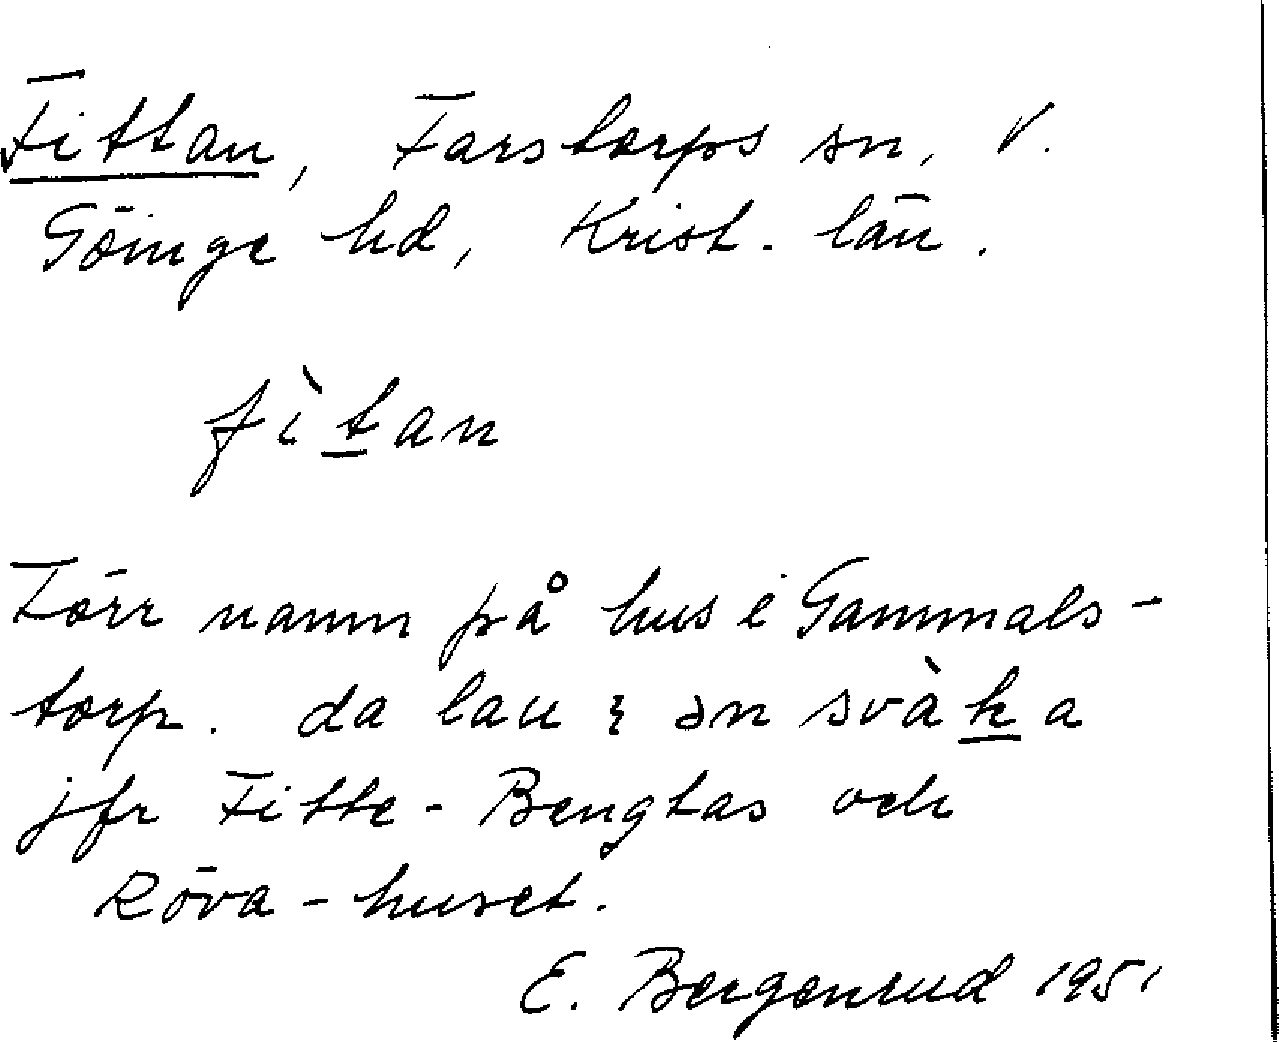 Fittan, Farstorps sn, V.
Göinge hd, Krist. län.
fìtan
Förr namn på hus i Gammals-
torp. da lau i ən svàka
jfr Fitte-Bengtas och
Röva-huset.
E. Bergenrud 1951